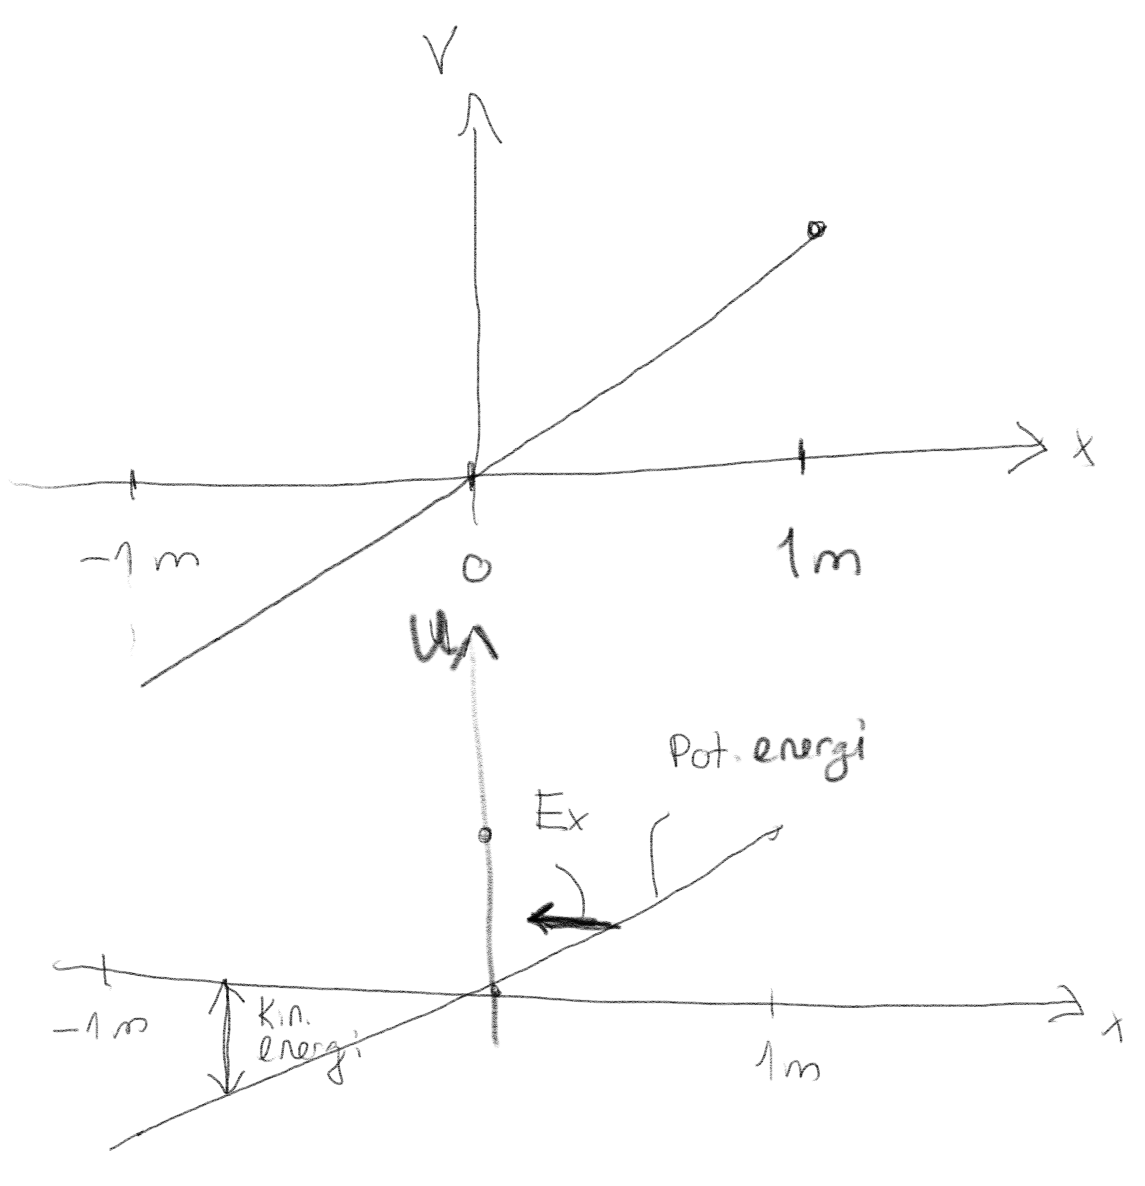 V
x
-1 m
0
1 m
U
Pot. energi
Ex
-1 m
Kin.
energi
1 m
x